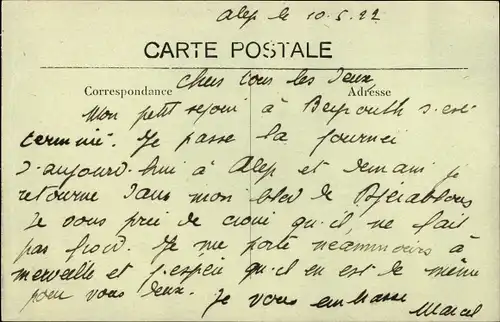 Alep le 10.5.22
CARTE POSTALE
Chers tous les deux
Correspondance
Adresse
Mon petit sejour à Beyrouth s'est
terminé. Je passe la journei
d'aujourd'hui à Alep et demain je
retourne dans mon bled de Djérablous
Je vous prie de croire qu'il ne fait
pas froid. Je me porte néammoins à
merveille et j'espère qu'il en est de même
pour vous deux. Je vous embrasse
Marcel